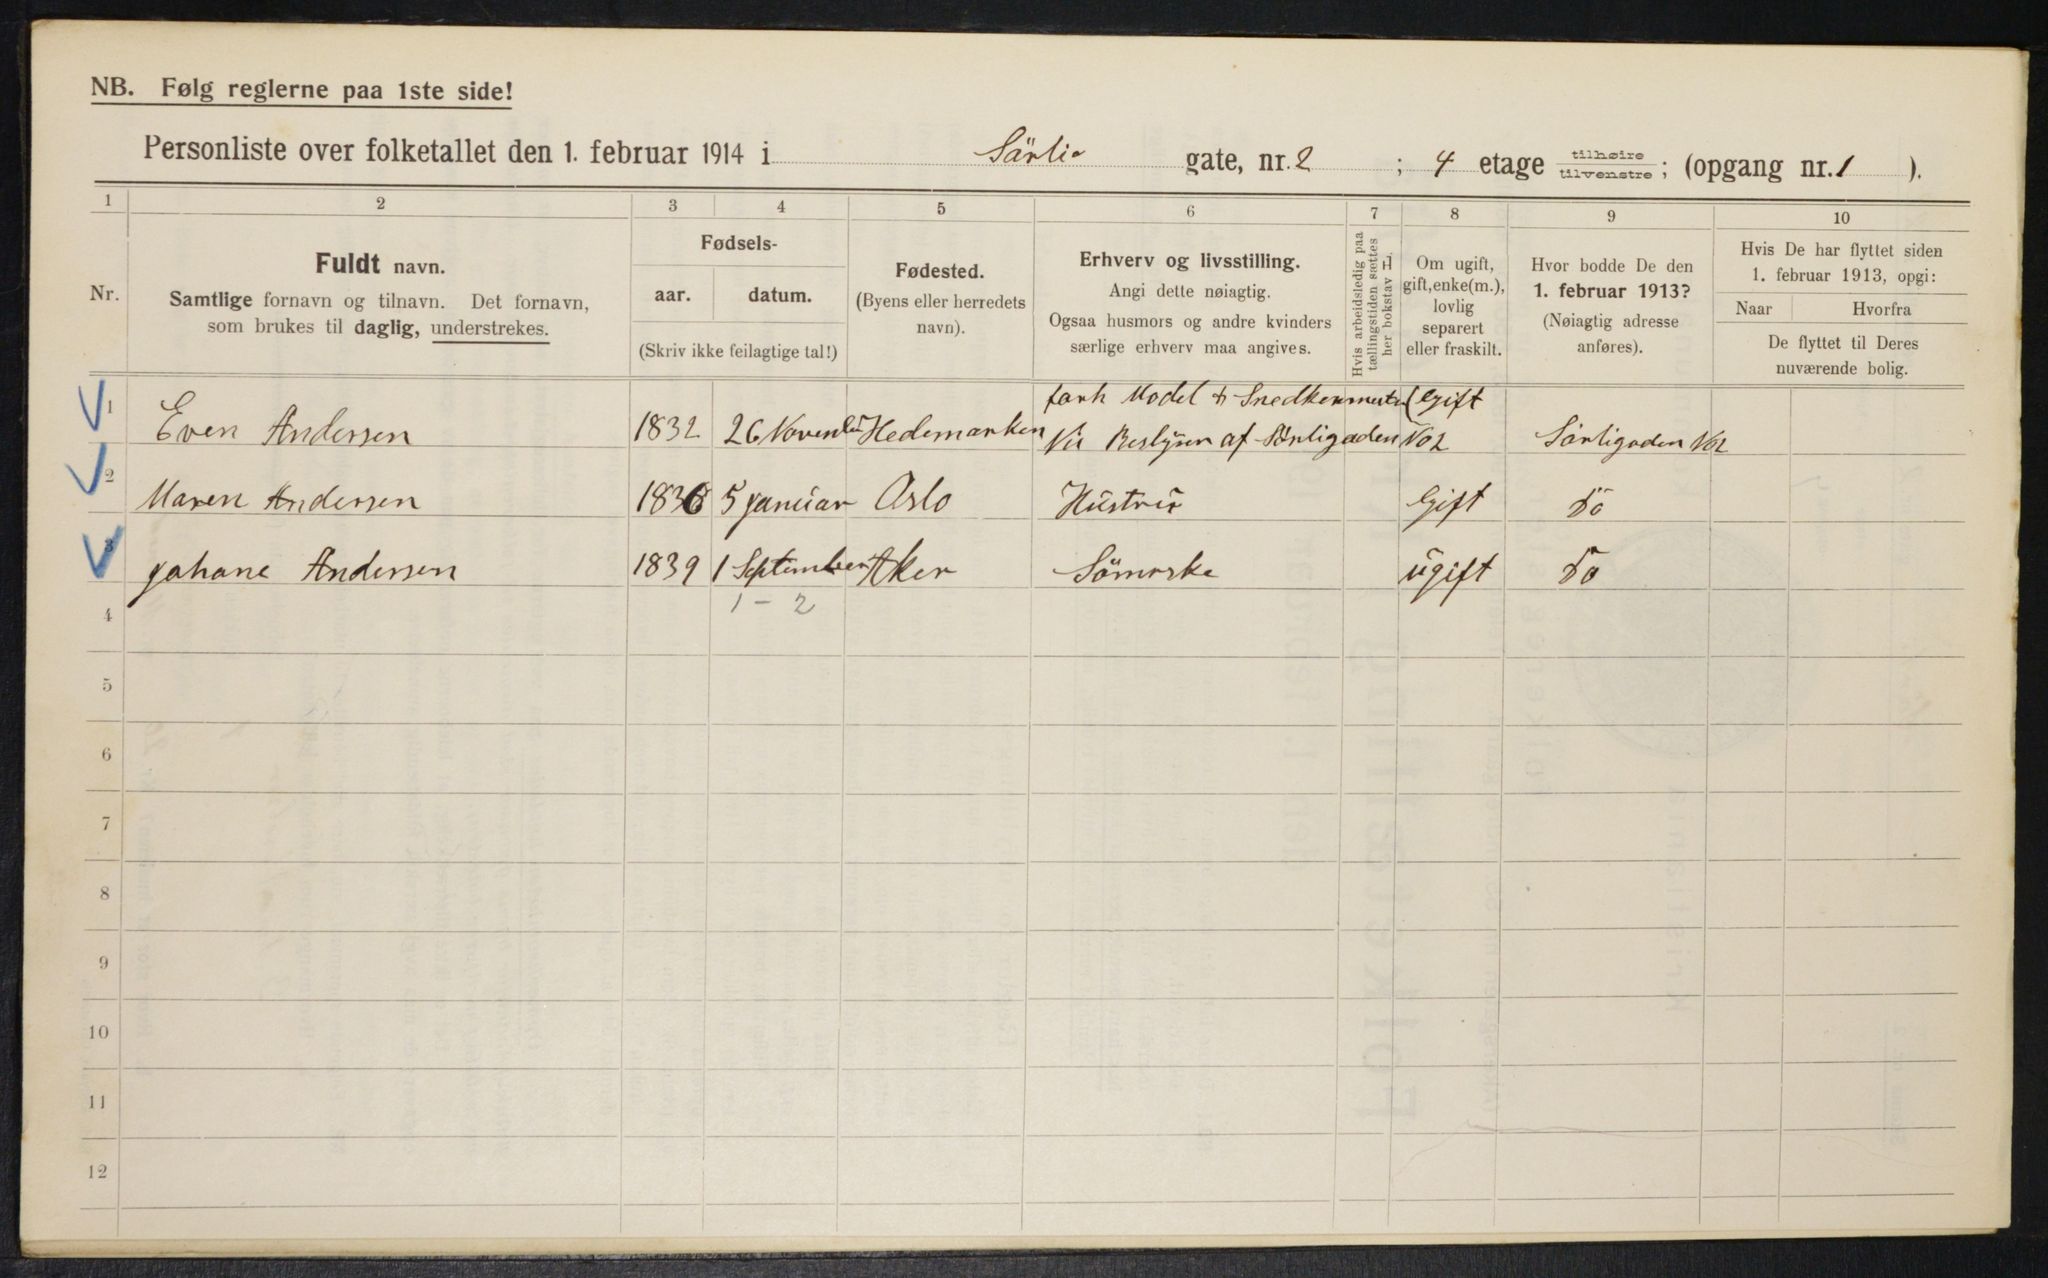 NB. Følg reglerne paa 1ste side!
Personliste over folketallet den 1. februar 1914 i Särli gate, nr. 2 ; 4 etage tilhøire tilvenstre ; (opgang nr. 1 ).
1 2 3 4 5 6 7 8 9 10
Nr.
Fuldt navn.
Samtlige fornavn og tilnavn. Det fornavn,
som brukes til daglig, understrekes.
Fødsels-
aar. datum.
(Skriv ikke feilagtige tal!)
Fødested.
(Byens eller herredets
navn).
Erhverv og livsstilling.
Angi dette nøiagtig.
Ogsaa husmors og andre kvinders
særlige erhverv maa angives.
Hvis arbeidsledig paa
tællingstiden sættes
her bokstav L
Om ugift,
gift, enke(m.),
lovlig
separert
eller fraskilt.
Hvor bodde De den
1. februar 1913?
(Nøiagtig adresse
anføres).
Hvis De har flyttet siden
1. februar 1913, opgi:
Naar Hvorfra
De flyttet til Deres
nuværende bolig.
1 Even Andersen 1832 26 November Hedemarken forh Model & Snedkermester Gift
af Sörligaden No 2 Sörligaden No 2
2 Maren Andersen 1836 5 Januar Oslo Hustru Gift Do
3 Johane Andersen 1839 1 September Aker Sömerske ugift Do
1 - 2
4
5
6
7
8
9
10
11
12